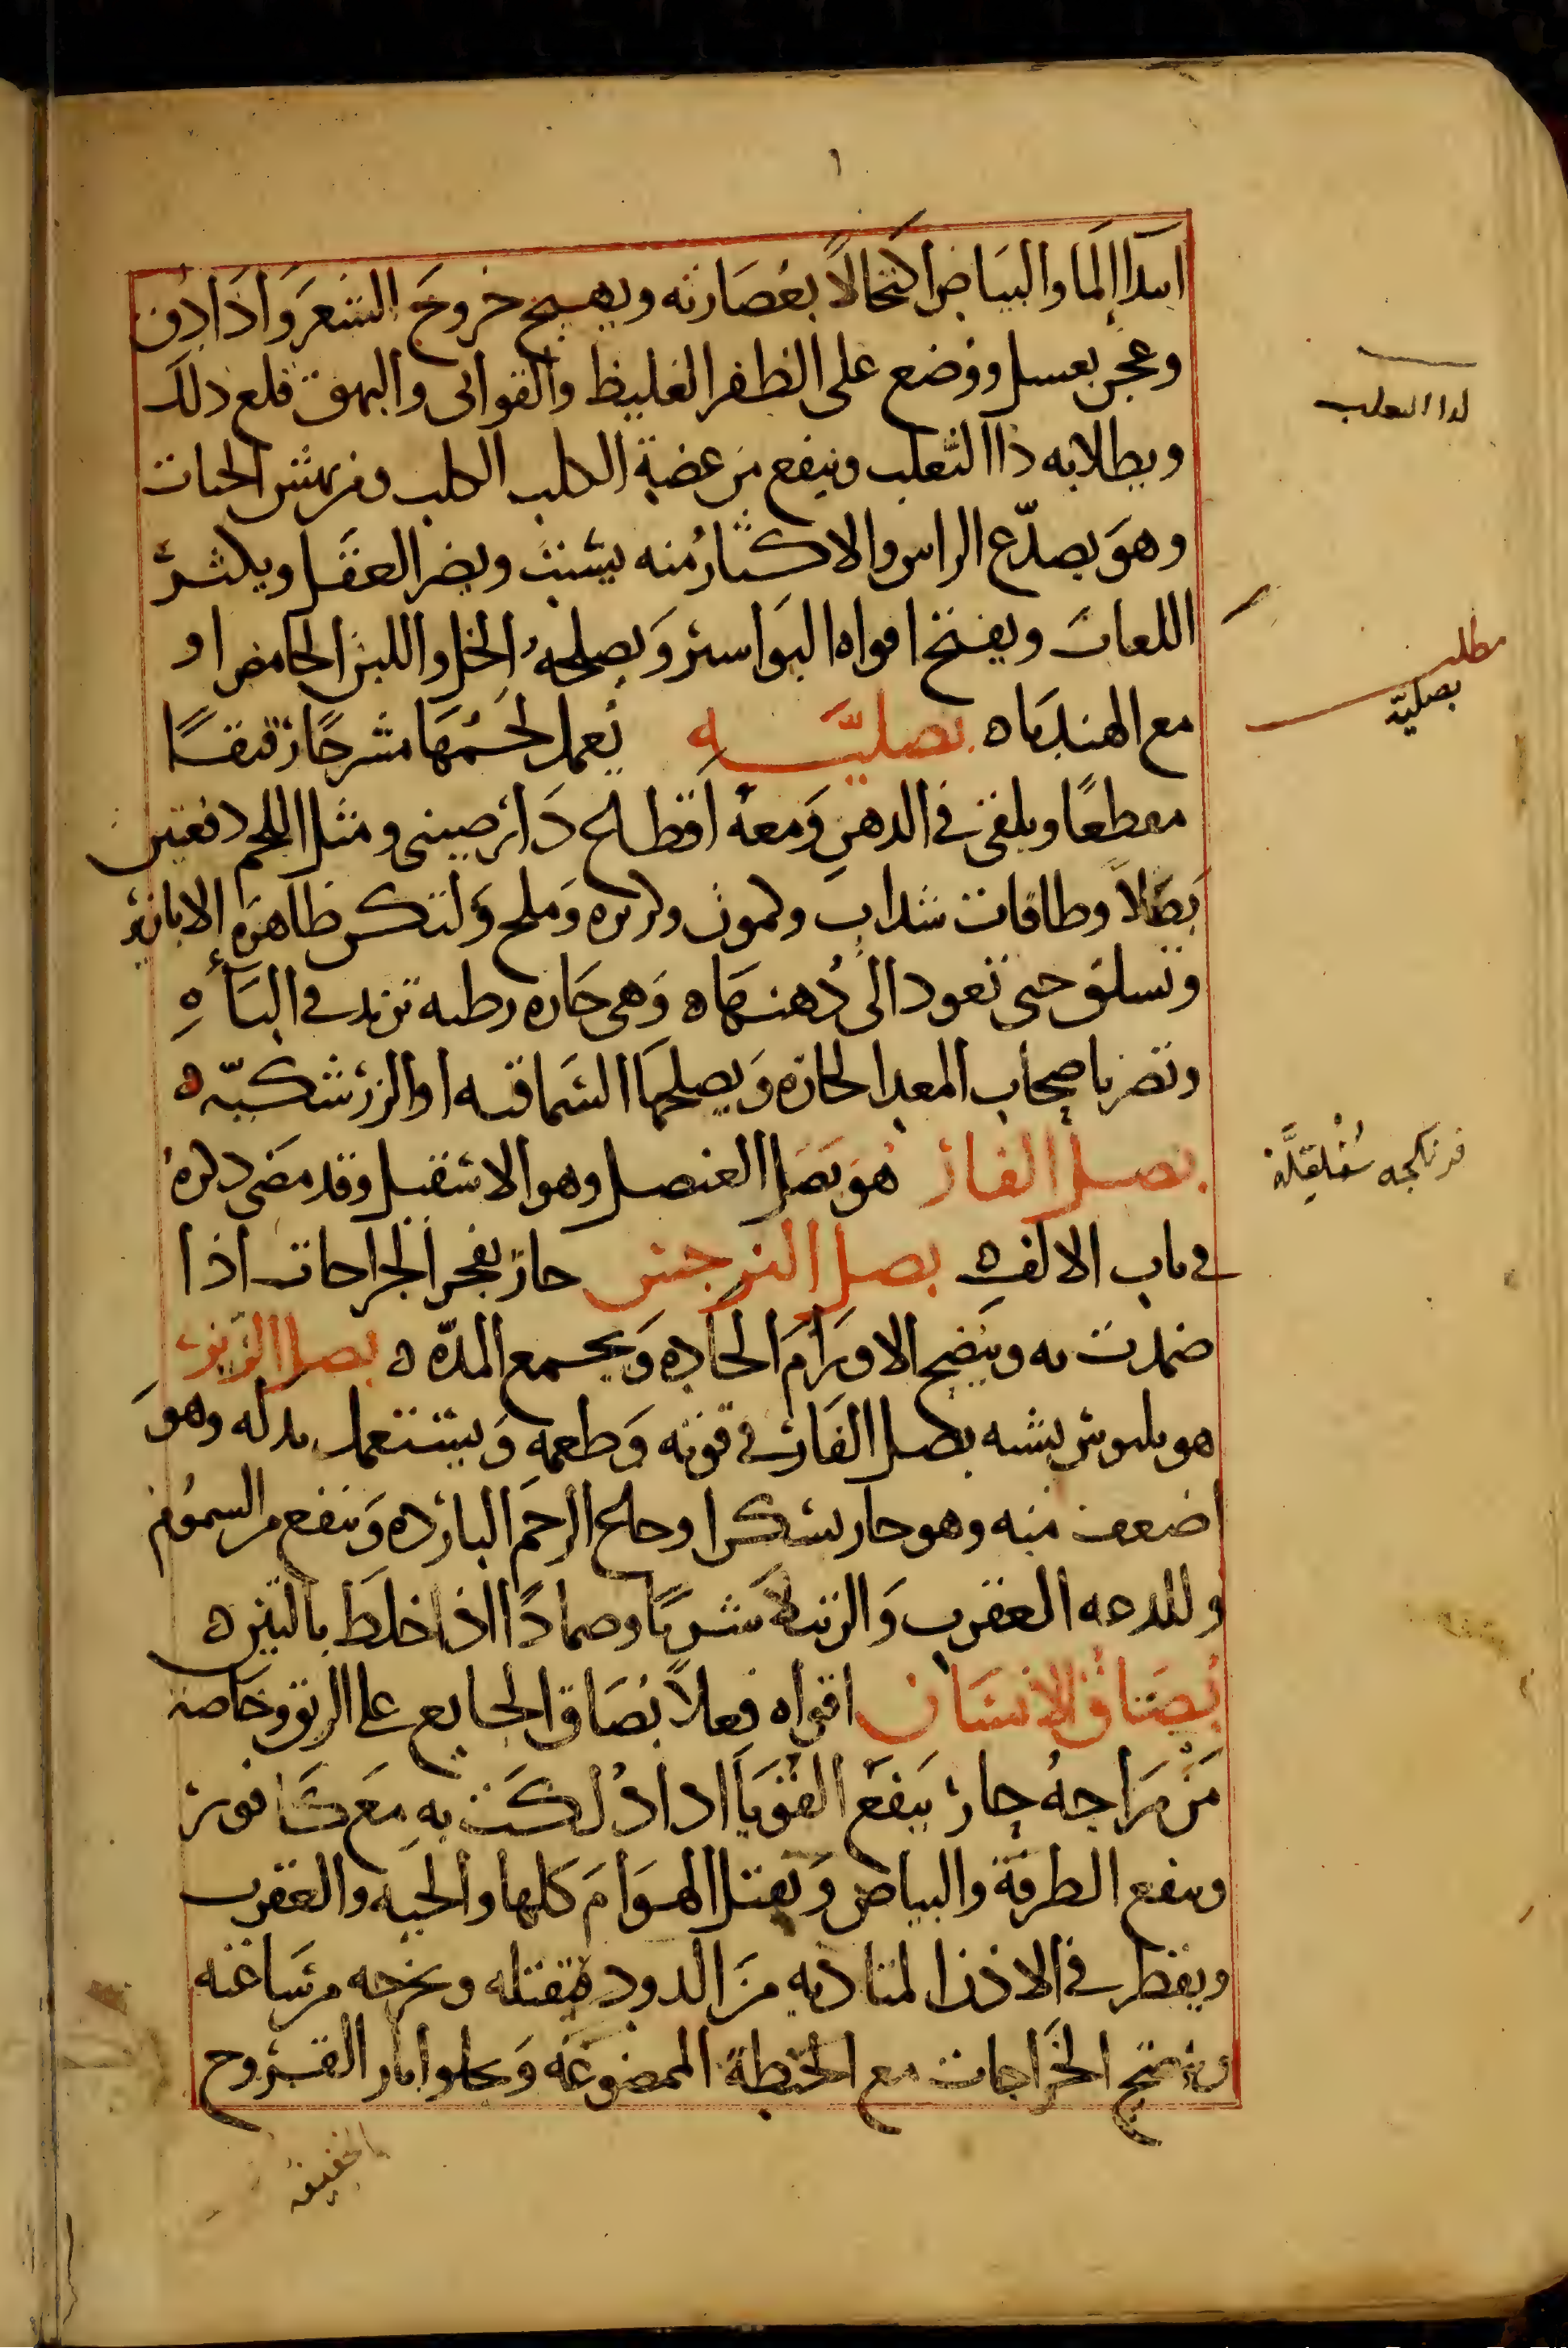 ١
ابتدا الما والبياض اكتحالًا بعُصَارته ويهيج خروجَ الشعَر وَاذَا دق
وعجن بعسل ووضع على الظفر الغليظ والقوابى والبهق قلع ذلك
ويطلا به دَاا لثعلب وينفع من عضة الكلب الكلب ونهش الحيات
وهوَ يصدّع الراس والاكثار منه يسبت ويضر العقل ويكثر
اللعاب ويفتح افواه البوَاسير وَيصلحهُ الخل واللبن الحامض او
مع الهندباه بصليَّه يُعمل لحَمُهَا مشرحًا رقيقًا
مقطعًا ويلقى في الدهنِ وَمعهُ اقطاع دَارصينى ومثل اللحم دفعتين
بَصَلاً وطاقات سداب وكمون وكزبره وَملح وَلتكن ظاهرَه الابازير
وتسلق حتى تعود الى دُهنهَاه وَهى حَاره رطبه تزيد في البَاهِ
وتضر باصحاب المعد الحاره وَيصلحهَا السَماقيه او الزرشكيّه ه
بصل الفار هوَ بَصَل العنصل وهو الاسقيل وقد مضى دكرهُ
في باب الالف ه بصل النرجس حار يفجر الجراحات اذا
ضمدت به وَينضج الاورَامَ الحاده وَيجمع المدّه ه بصل الزيز
هو بلبوس يشبه بصل الفار في قوته وَطعمه وَيستعمل بدله وهوَ
اضعف منه وهو حار يسكن اوجاع الرحَم البارده وَينفع من السمُوم
وللدعه العقرب وَالرتيلا شربًا وضمادًا اذا خلط بالتين ه
بُصَاق الانسَان اقواه فعلاً بُصَاق الجايع على الريق وخَاصة
مَنْ مزَاجهُ حار يَنفَع القوَبَا ادا دُلكَت بهِ مَع كَافور
وينفع الطرفة والبياض وَيقتل الهوَامَ كلها والحيه والعقرب
ويقطر في الاذن المتاديه منَ الدود فيقتله ويخرجه من سَاعته
وينضج الخرَاجات مع الحنطة الممضوغه وَيجلو اثار القروح
لداالثعلب
مطلب
بصليّه
فرنكجه سُقلقلَّه
الخفيفه